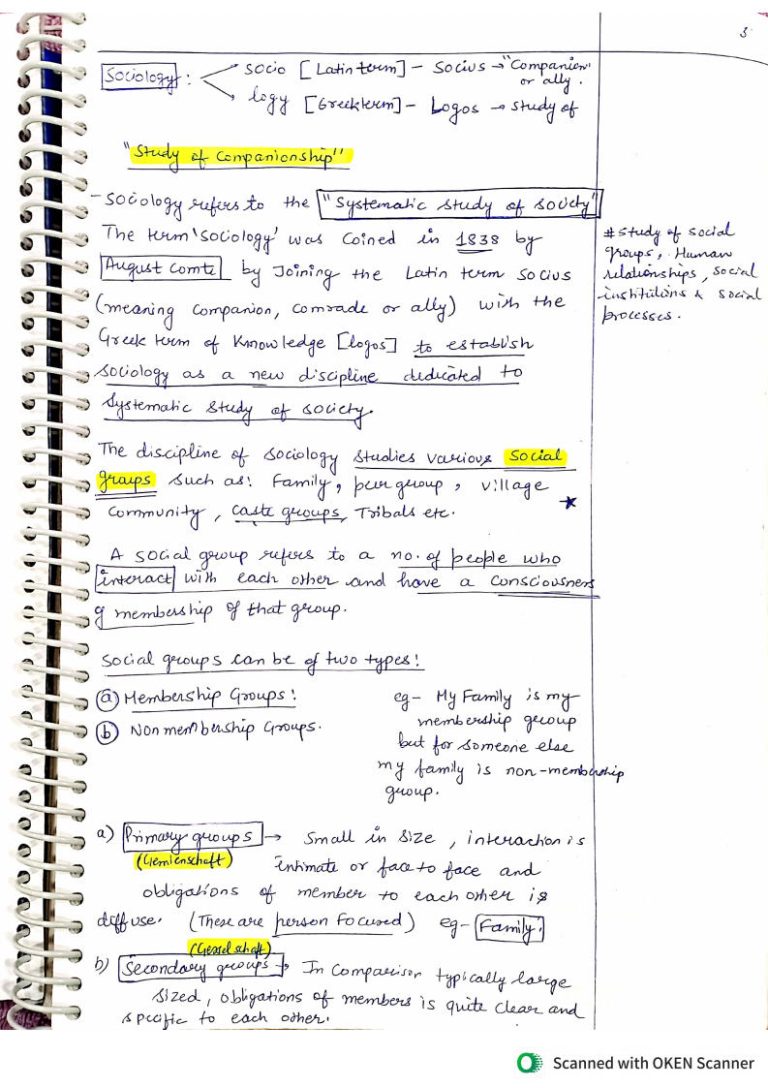 3
Sociology : socio [Latin term] - Socius → "Companion" or ally.
logy [Greek term] - Logos → study of
"Study of Companionship"
- Sociology refers to the "Systematic study of society"
The term 'sociology' was coined in 1838 by
August Comte by Joining the Latin term socius
(meaning companion, comrade or ally) with the
Greek term of Knowledge [logos] to establish
sociology as a new discipline dedicated to
systematic study of society.
# study of social
groups, Human
relationships, social
institutions & social
processes.
The discipline of sociology studies various social
groups such as: Family, peer group, village
community, caste groups, Tribals etc.
A social group refers to a no. of people who
interact with each other and have a consciousness
of membership of that group.
Social groups can be of two types:
(a) Membership Groups:
(b) Non membership Groups.
eg- My Family is my
membership group
but for someone else
my family is non-membership
group.
a) Primary groups → Small in size, interaction is
(Gemienschaft) intimate or face to face and
obligations of member to each other is
diffuse. (These are person focused) eg- Family.
(Gessel schaft)
b) Secondary groups → In comparison typically large
sized, obligations of members is quite clear and
specific to each other.
Scanned with OKEN Scanner